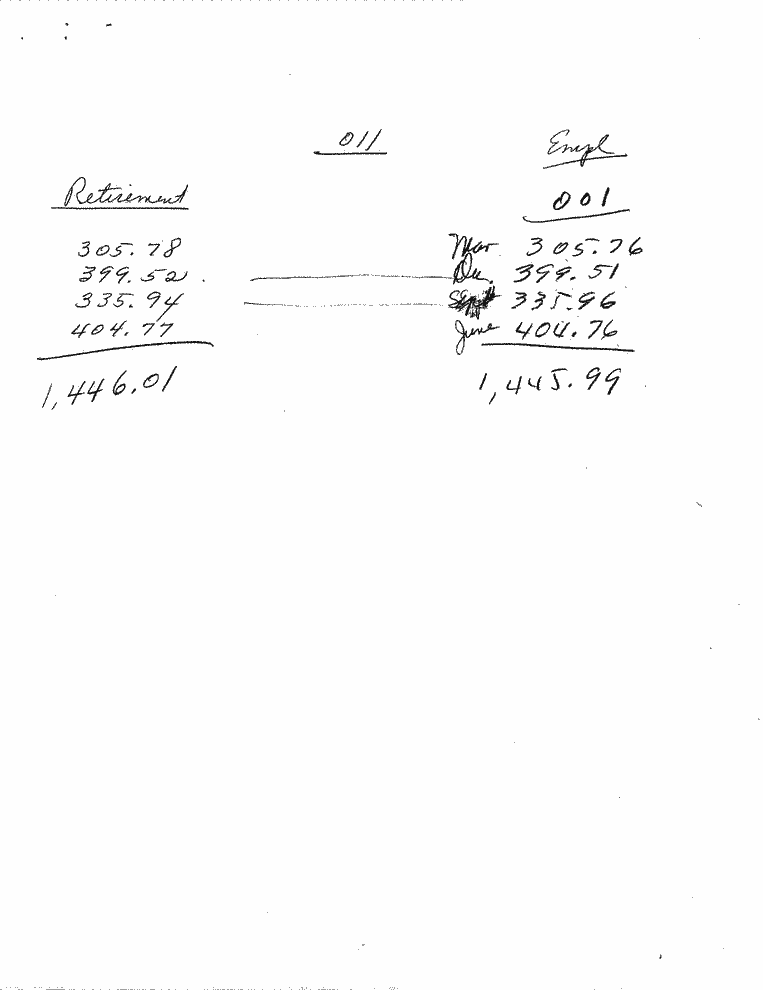 011 Empl
Retirement 001
305.78 Mar 305.76
399.52 Dec. 399.51
335.94 Sept 335.96
404.77 June 404.76
1,446.01 1,445.99